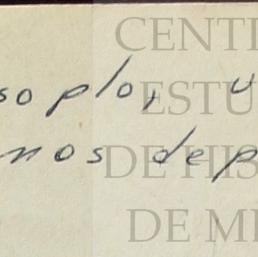 soplo, u
mos dep
CENT
ESTU
DE HIS
DE M